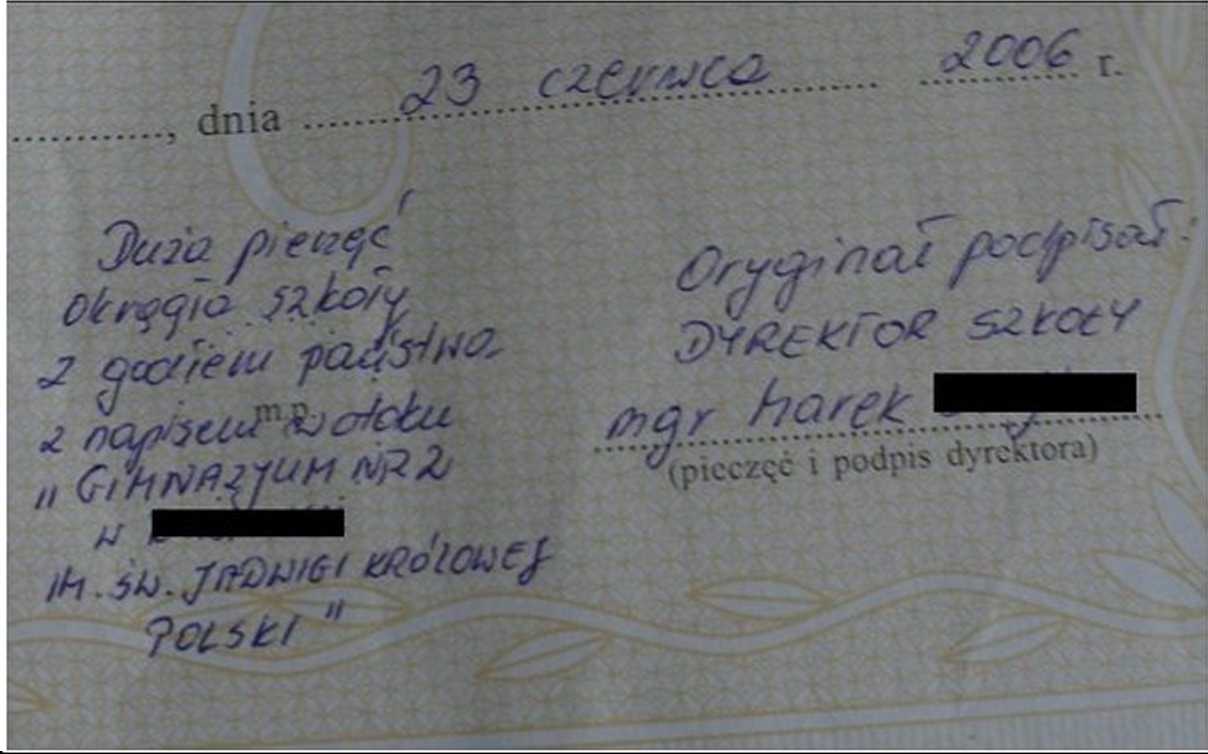 ..............., dnia 23 czerwca 2006 r.
Duża pieczęć
okrągła szkoły
z godłem państwa
m.p.
z napisem w otoku
„GIMNAZJUM NR 2
w
IM. ŚW. JADWIGI KRÓLOWEJ
POLSKI"
Oryginał podpisał:
DYREKTOR SZKOŁY
mgr Marek
(pieczęć i podpis dyrektora)